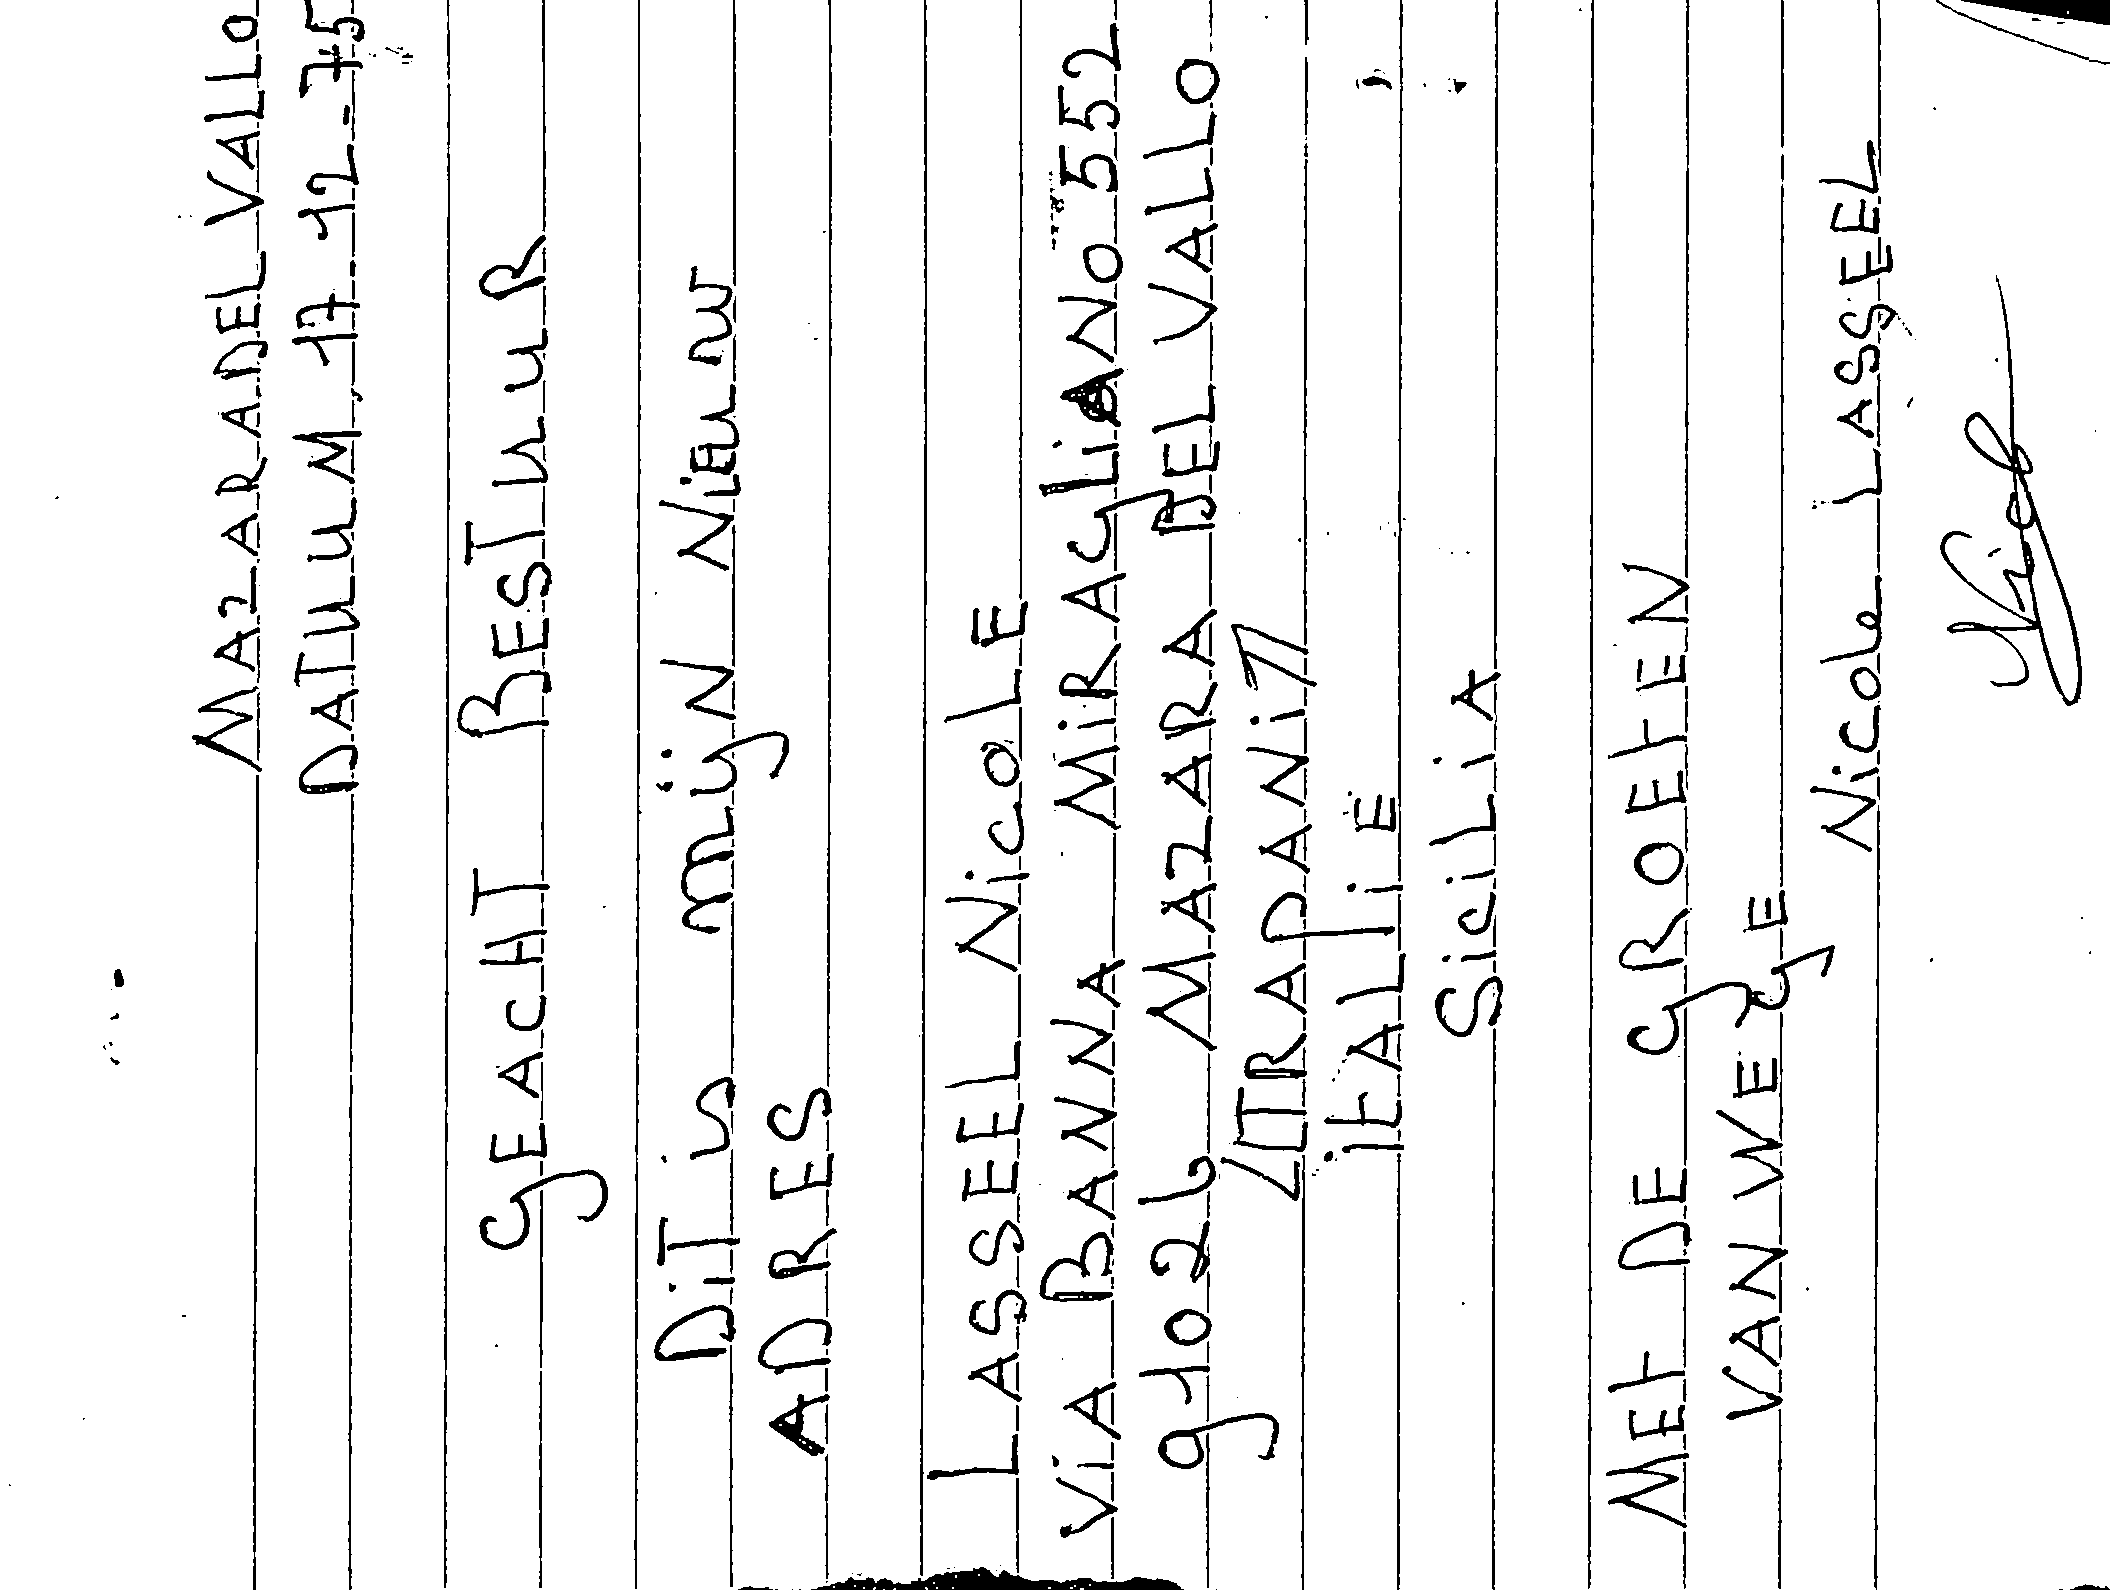 MAZARADELVALLO
DATUUM, 17-12-75
GEACHT BESTUUR
DiT is mijn Nieuw
ADRES
LASEEL NicoLE
ViA BANNA MiRAgLiANO 552
91026 MAZARA DEL VALLO
//TRAPANi//
itALiE
SiciLiA
MEt DE GROEtEN
VANWEgE
Nicole LASSEEL